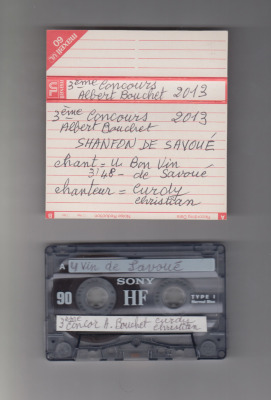 maxell UL
60
3ème Concours
Albert Bouchet 2013
maxell
UL
3ème Concours 2013
Albert Bouchet
SHANFON DE SAVOUÉ
chant = U Bon Vin
3'48 - de Savoué
chanteur = Curdy
christian
A
U Vin de Savoué
SONY
90 HF TYPE I
Normal Bias
3ème Concor A. Bouchet curdy
christian